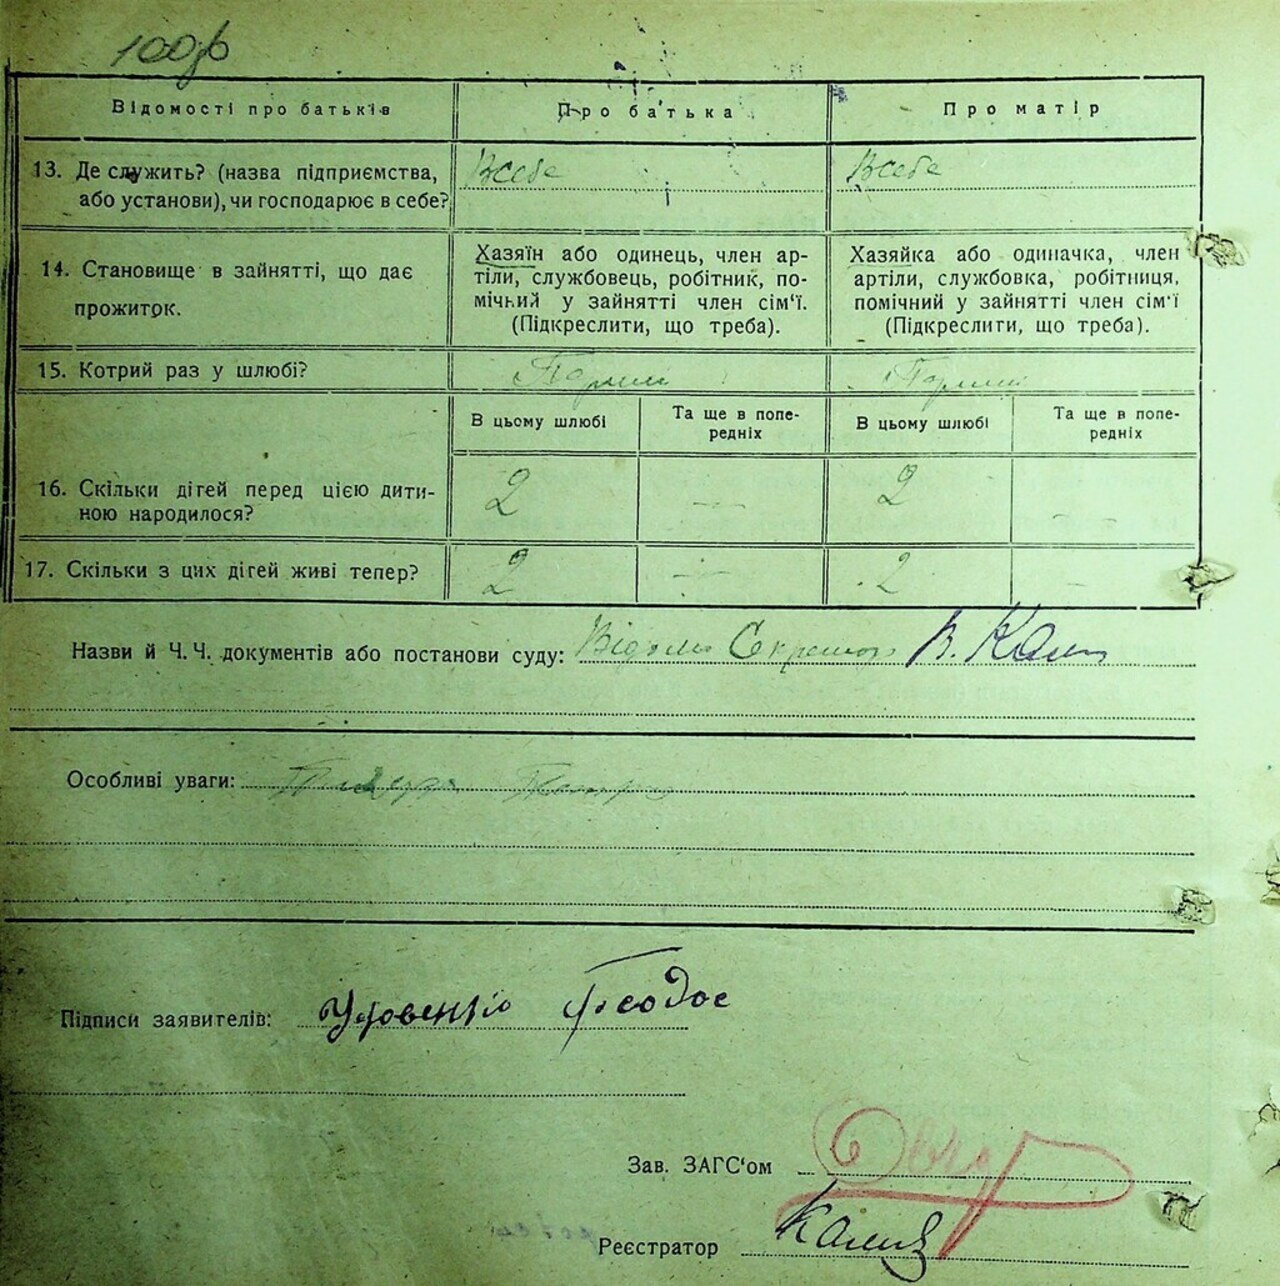 100
Відомості про батьків
Про батька
Про матір
13. Де служить? (назва підприємства,
або установи), чи господарює в себе?
Всебе
Всебе
14. Становище в зайнятті, що дає
прожиток.
Хазяїн або одинець, член ар-
тіли, службовець, робітник, по-
мічний у зайнятті член сім'ї.
(Підкреслити, що треба).
Хазяйка або одиначка, член
артіли, службовка, робітниця,
помічний у зайнятті член сім'ї
(Підкреслити, що треба).
15. Котрий раз у шлюбі?
В цьому шлюбі
Та ще в попе-
редніх
В цьому шлюбі
Та ще в попе-
редніх
16. Скільки дітей перед цією дити-
ною народилося?
2
—
2
—
17. Скільки з цих дітей живі тепер?
2
—
2
—
Назви й Ч.Ч. документів або постанови суду:
Особливі уваги:
Підписи заявителів: Удовенко Теодос
Зав. ЗАГС'ом
Реєстратор